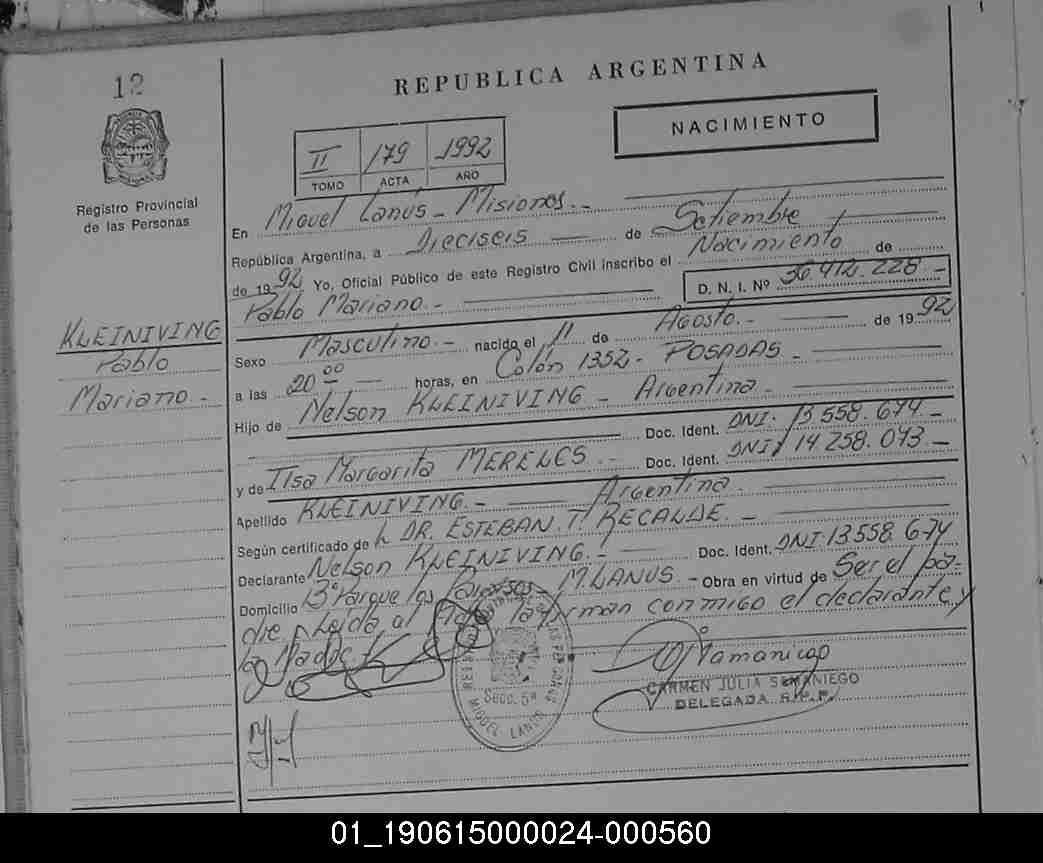 12
REPUBLICA ARGENTINA
NACIMIENTO
II 179 1992
TOMO ACTA AÑO
Registro Provincial
de las Personas
En Miguel Lanús - Misiones.-
República Argentina, a Dieciseis de Setiembre
de 1992 Yo, Oficial Público de este Registro Civil inscribo el Nacimiento de
Pablo Mariano.- D. N. I. Nº 36.412.228.-
KLEINIVING
Pablo
Mariano.-
Sexo Masculino.- nacido el 11 de Agosto.- de 1992
a las 20 00 horas, en Colón 1352- POSADAS.-
Hijo de Nelson KLEINIVING - Argentina.-
Doc. Ident. DNI. 13.558.674.-
y de Ilsa Margarita MERELES.- Doc. Ident. DNI 14.258.043.-
Argentina.
Apellido KLEINIVING.-
Según certificado de L DR. ESTEBAN T. RECALDE.-
Declarante Nelson KLEINIVING.- Doc. Ident. DNI. 13.558.674
Domicilio Bº Parque los M. LANUS.- Obra en virtud de Ser el pa-
dre.- Leida al firman conmigo el declarante y
la Madre
CARMEN JULIA SAMANIEGO
DELEGADA R.P.P.
Secc. 5ª
MIGUEL LANUS
01_190615000024-000560